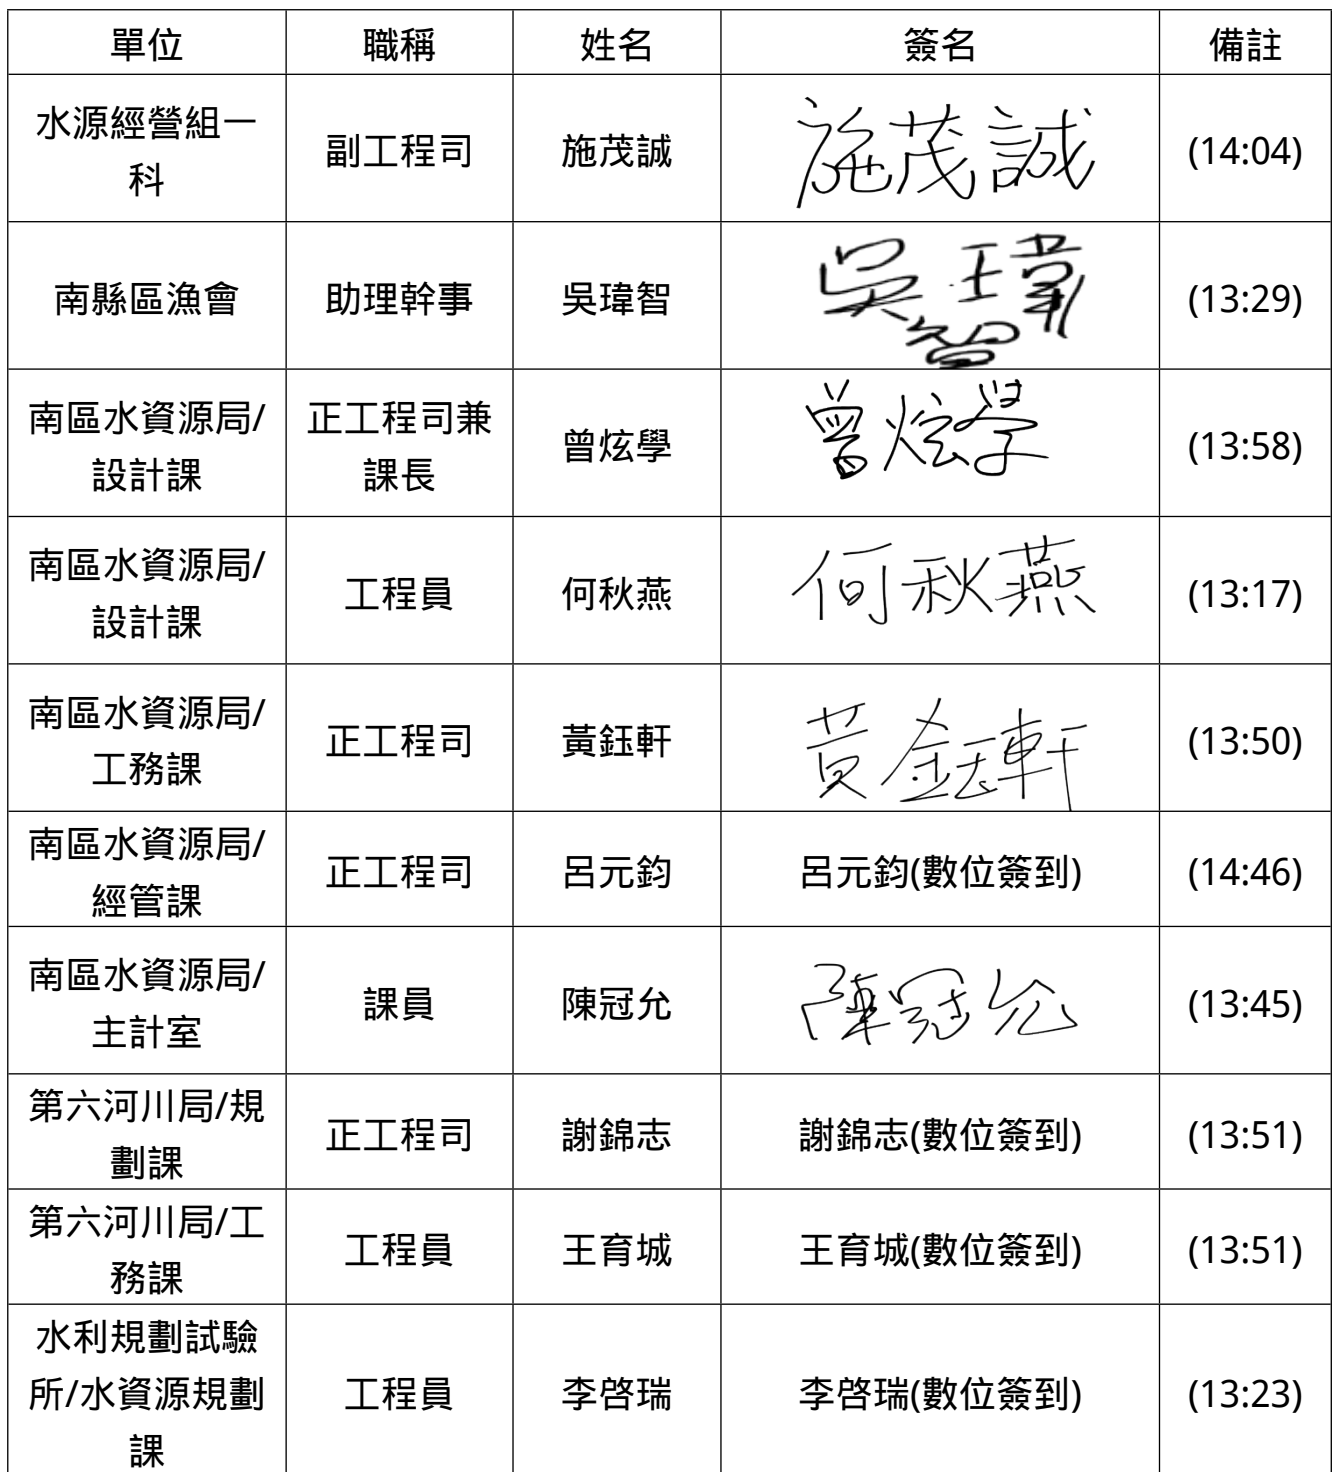 單位 職稱 姓名 簽名 備註
水源經營組一
科
副工程司 施茂誠 施茂誠 (14:04)
南縣區漁會 助理幹事 吳瑋智 吳瑋智 (13:29)
南區水資源局/
設計課
正工程司兼
課長
曾炫學 曾炫學 (13:58)
南區水資源局/
設計課
工程員 何秋燕 何秋燕 (13:17)
南區水資源局/
工務課
正工程司 黃鈺軒 黃鈺軒 (13:50)
南區水資源局/
經管課
正工程司 呂元鈞 呂元鈞(數位簽到) (14:46)
南區水資源局/
主計室
課員 陳冠允 陳冠允 (13:45)
第六河川局/規
劃課
正工程司 謝錦志 謝錦志(數位簽到) (13:51)
第六河川局/工
務課
工程員 王育城 王育城(數位簽到) (13:51)
水利規劃試驗
所/水資源規劃
課
工程員 李啓瑞 李啓瑞(數位簽到) (13:23)